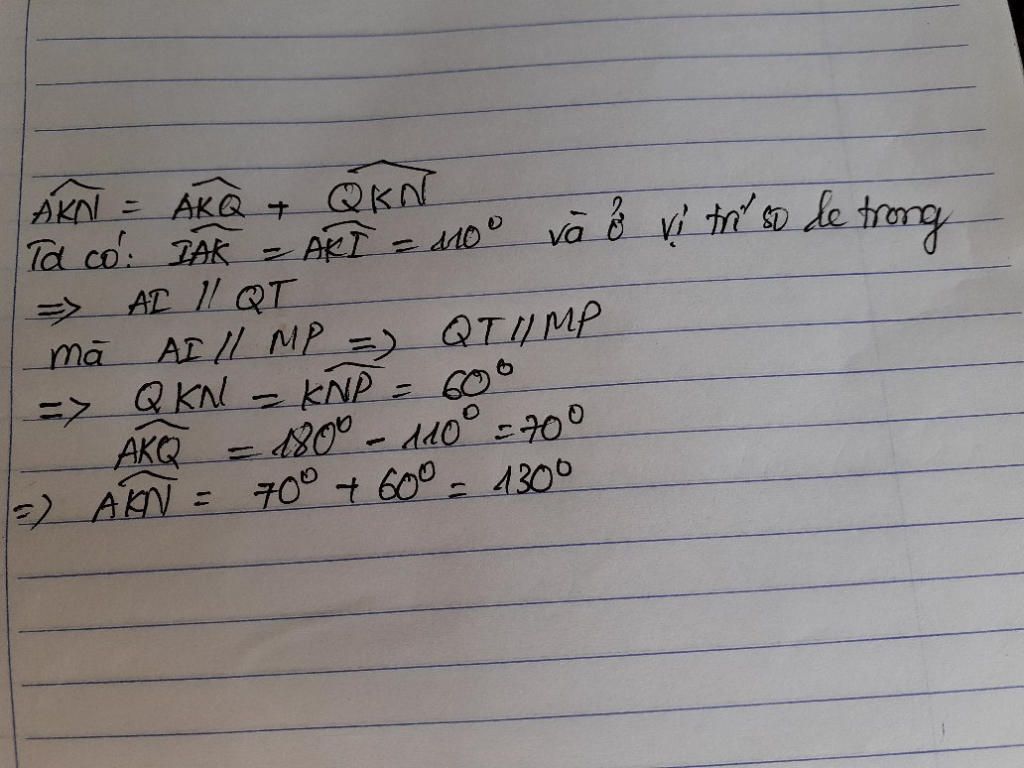 \widehat{AKN} = \widehat{AKQ} + \widehat{QKN}
Ta có: \widehat{IAK} = \widehat{AKI} = 110⁰ và ở vị trí so le trong
=> AI // QT
mà AI // MP => QT // MP
=> QKN = \widehat{KNP} = 60⁰
\widehat{AKQ} = 180⁰ - 110⁰ = 70⁰
=> \widehat{AKN} = 70⁰ + 60⁰ = 130⁰